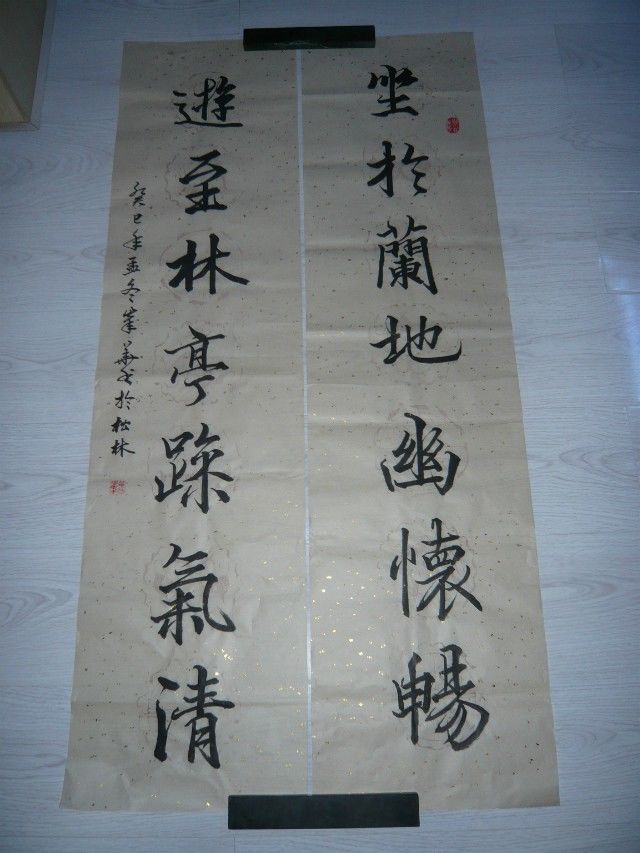 坐於蘭地幽懷暢
遊至林亭躁氣清
癸巳年孟冬 於松林